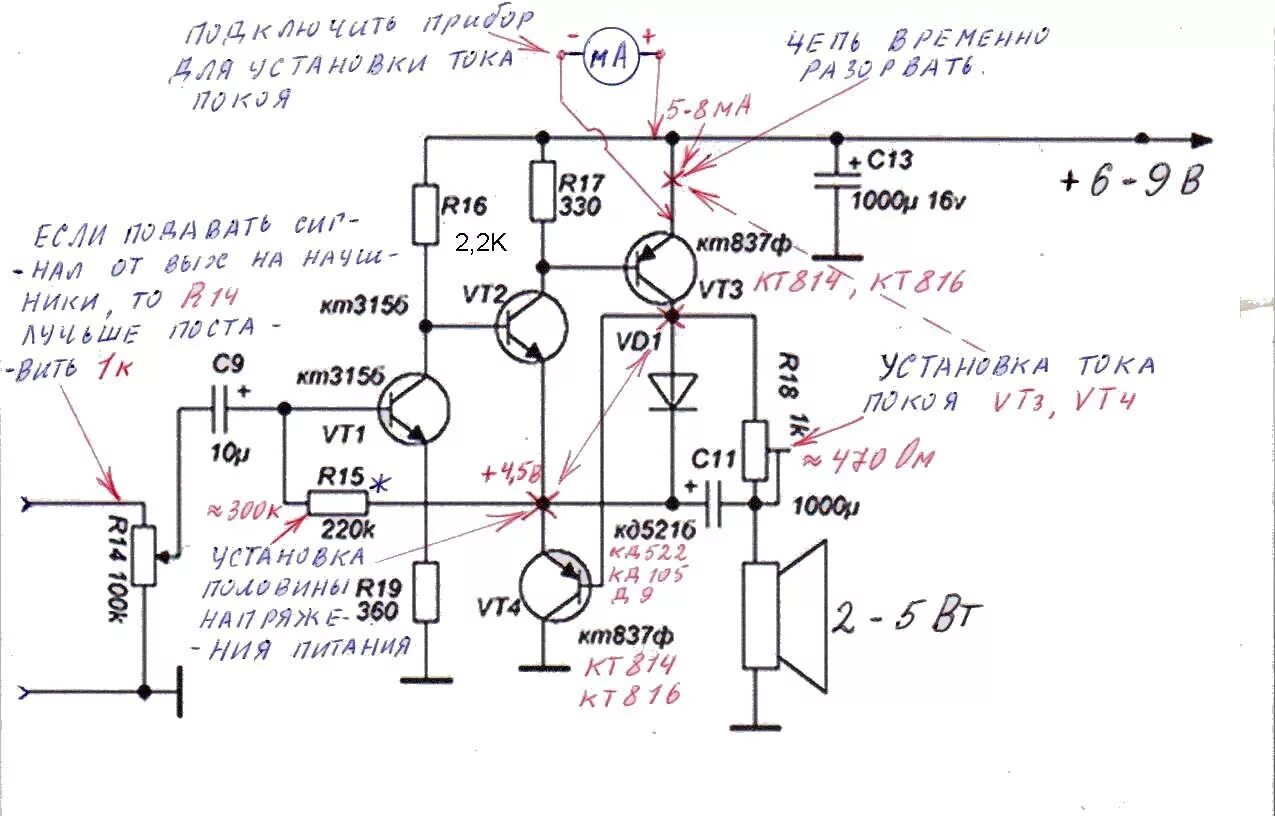 ПОДКЛЮЧИТЬ ПРИБОР
ДЛЯ УСТАНОВКИ ТОКА
ПОКОЯ
- мА +
ЦЕПЬ ВРЕМЕННО
РАЗОРВАТЬ.
5-8 мА
+ C13
1000µ 16v
+ 6 - 9 В
R16
2,2K
R17
330
кт837ф
VT3
КТ814, КТ816
ЕСЛИ ПОДАВАТЬ СИГ-
- НАЛ ОТ ВЫХ НА НАУШ-
НИКИ, ТО R14
ЛУЧЬШЕ ПОСТА -
- ВИТЬ 1к
кт315б
VT2
C9
+
10µ
кт315б
VT1
VD1
R18 1k
УСТАНОВКА ТОКА
ПОКОЯ VT3, VT4
≈ 470 Ом
R15 *
220k
≈ 300к
+4,5в
C11
+
1000µ
кд521б
КД522
КД105
Д9
R14 100k
УСТАНОВКА
ПОЛОВИНЫ
НАПРЯЖЕ-
- НИЯ ПИТАНИЯ
R19
360
VT4
кт837ф
КТ814
КТ816
2 - 5 Вт